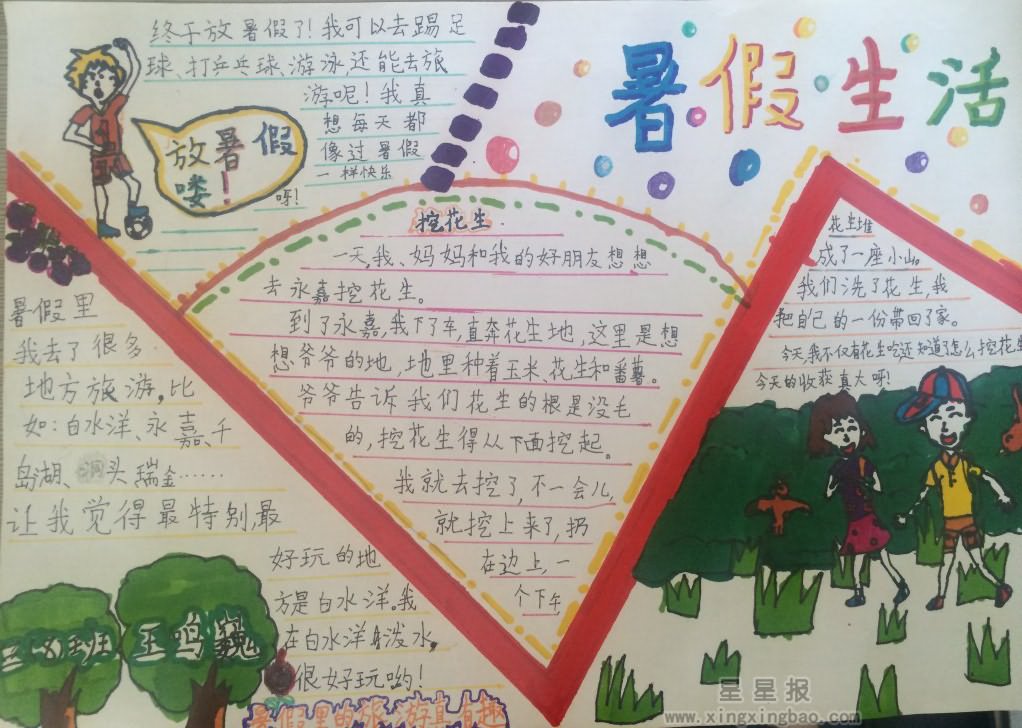 暑假生活
终于放暑假了！我可以去踢足
球、打乒乓球、游泳，还能去旅
游呢！我真
想每天都
像过暑假
一样快乐
呀！
放暑假
喽！
挖花生
一天，我、妈妈和我的好朋友想想
去永嘉挖花生。
到了永嘉，我下了车，直奔花生地，这里是想
想爷爷的地，地里种着玉米、花生和番薯。
爷爷告诉我们花生的根是没毛
的，挖花生得从下面挖起。
我就去挖了，不一会儿，
就挖上来了，扔
在边上，一
个下午
花生堆
成了一座小山。
我们洗了花生，我
把自己的一份带回了家。
今天我不仅有花生吃还知道了怎么挖花生
今天的收获真大呀！
暑假里
我去了很多
地方旅游，比
如：白水洋、永嘉、千
岛湖、洞头瑞金……
让我觉得最特别，最
好玩的地
方是白水洋。我
在白水洋泼水，
很好玩哟！
三8班
王鸣巍
暑假里的旅游真有趣
星星报
www.xingxingbao.com